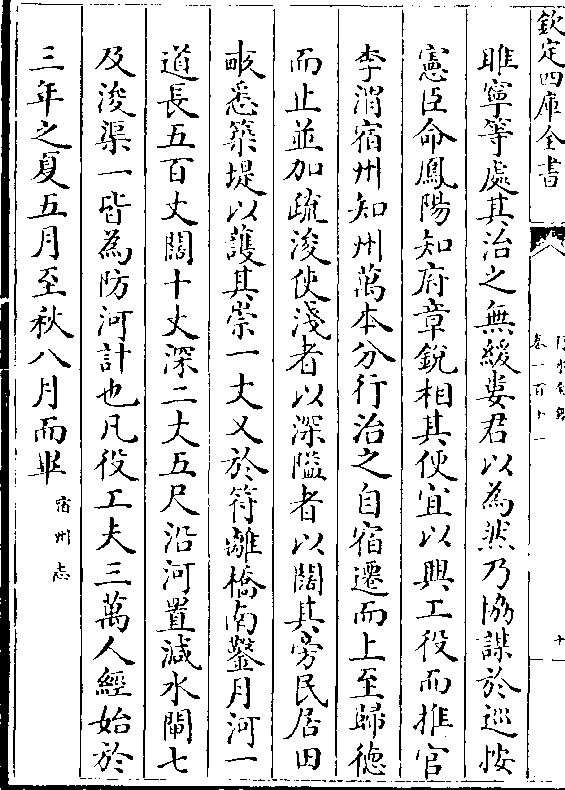 欽定四庫全書
卷一百六十一
十一
睢寧等處其治之無緩婁君以為然乃協謀於巡按
憲臣命鳳陽知府章銳相其便宜以興工役而推官
李渭宿州知州萬本分行治之自宿遷而上至歸德
而止並加疏浚使淺者以深隘者以闊其旁民居田
畝悉築堤以護其崇一丈又於符離橋南鑿月河一
道長五百丈闊十丈深二丈五尺沿河置減水閘七
及浚渠一皆為防河計也凡役工夫三萬人經始於
三年之夏五月至秋八月而畢宿州志